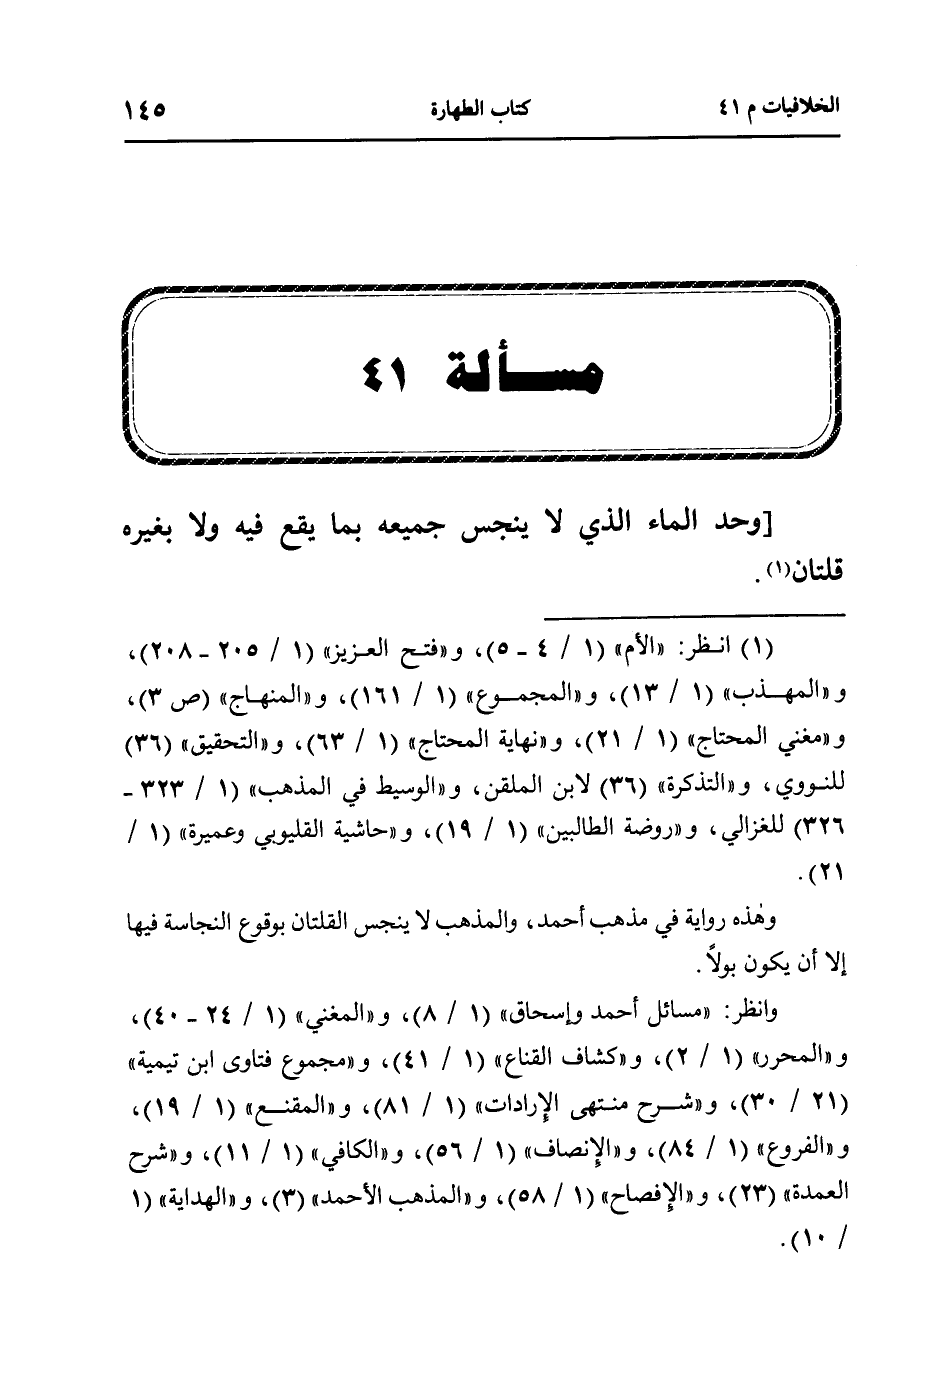 الخلافيات م ٤١ كتاب الطهارة ١٤٥
مسألة ٤١
[وحد الماء الذي لا ينجس جميعه بما يقع فيه ولا بغيره
قلتان(١) .
(١) انظر: «الأم» (١ / ٤ ـ ٥)، و«فتح العزيز» (١ / ٢٠٥ ـ ٢٠٨)،
و«المهذب» (١ / ١٣)، و«المجموع» (١ / ١٦١)، و«المنهاج» (ص ٣)،
و«مغني المحتاج» (١ / ٢١)، و«نهاية المحتاج» (١ / ٦٣)، و«التحقيق» (٣٦)
للنووي، و«التذكرة» (٣٦) لابن الملقن، و«الوسيط في المذهب» (١ / ٣٢٣ ـ
٣٢٦) للغزالي، و«روضة الطالبين» (١ / ١٩)، و«حاشية القليوبي وعميرة» (١ /
٢١).
وهٰذه رواية في مذهب أحمد، والمذهب لا ينجس القلتان بوقوع النجاسة فيها
إلا أن يكون بولاً.
وانظر: «مسائل أحمد وإسحاق» (١ / ٨)، و«المغني» (١ / ٢٤ ـ ٤٠)،
و«المحرر» (١ / ٢)، و«كشاف القناع» (١ / ٤١)، و«مجموع فتاوى ابن تيمية»
(٢١ / ٣٠)، و«شرح منتهى الإرادات» (١ / ٨١)، و«المقنع» (١ / ١٩)،
و«الفروع» (١ / ٨٤)، و«الإنصاف» (١ / ٥٦)، و«الكافي» (١ / ١١)، و«شرح
العمدة» (٢٣)، و«الإفصاح» (١ / ٥٨)، و«المذهب الأحمد» (٣)، و«الهداية» (١
/ ١٠).